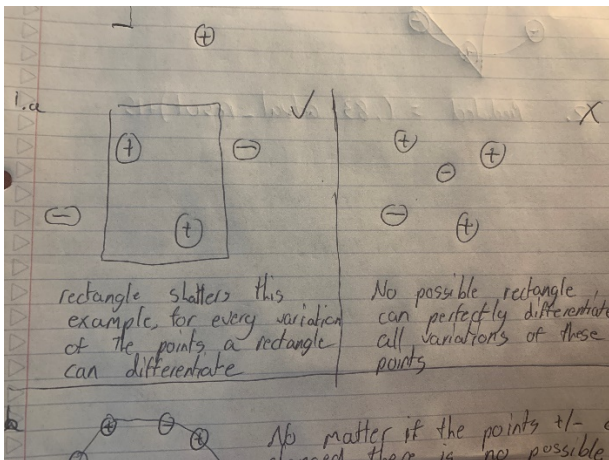 ⊕
i.a
✓
X
⊕ ⊖
⊖ ⊕
⊕ ⊕
⊖
⊖ ⊕
rectangle shatters this
example, for every variation
of the points a rectangle
can differentiate
No possible rectangle
can perfectly differentiate
all variations of these
points
b
⊕ ⊖ ⊕
No matter if the points +/-
there is no possible